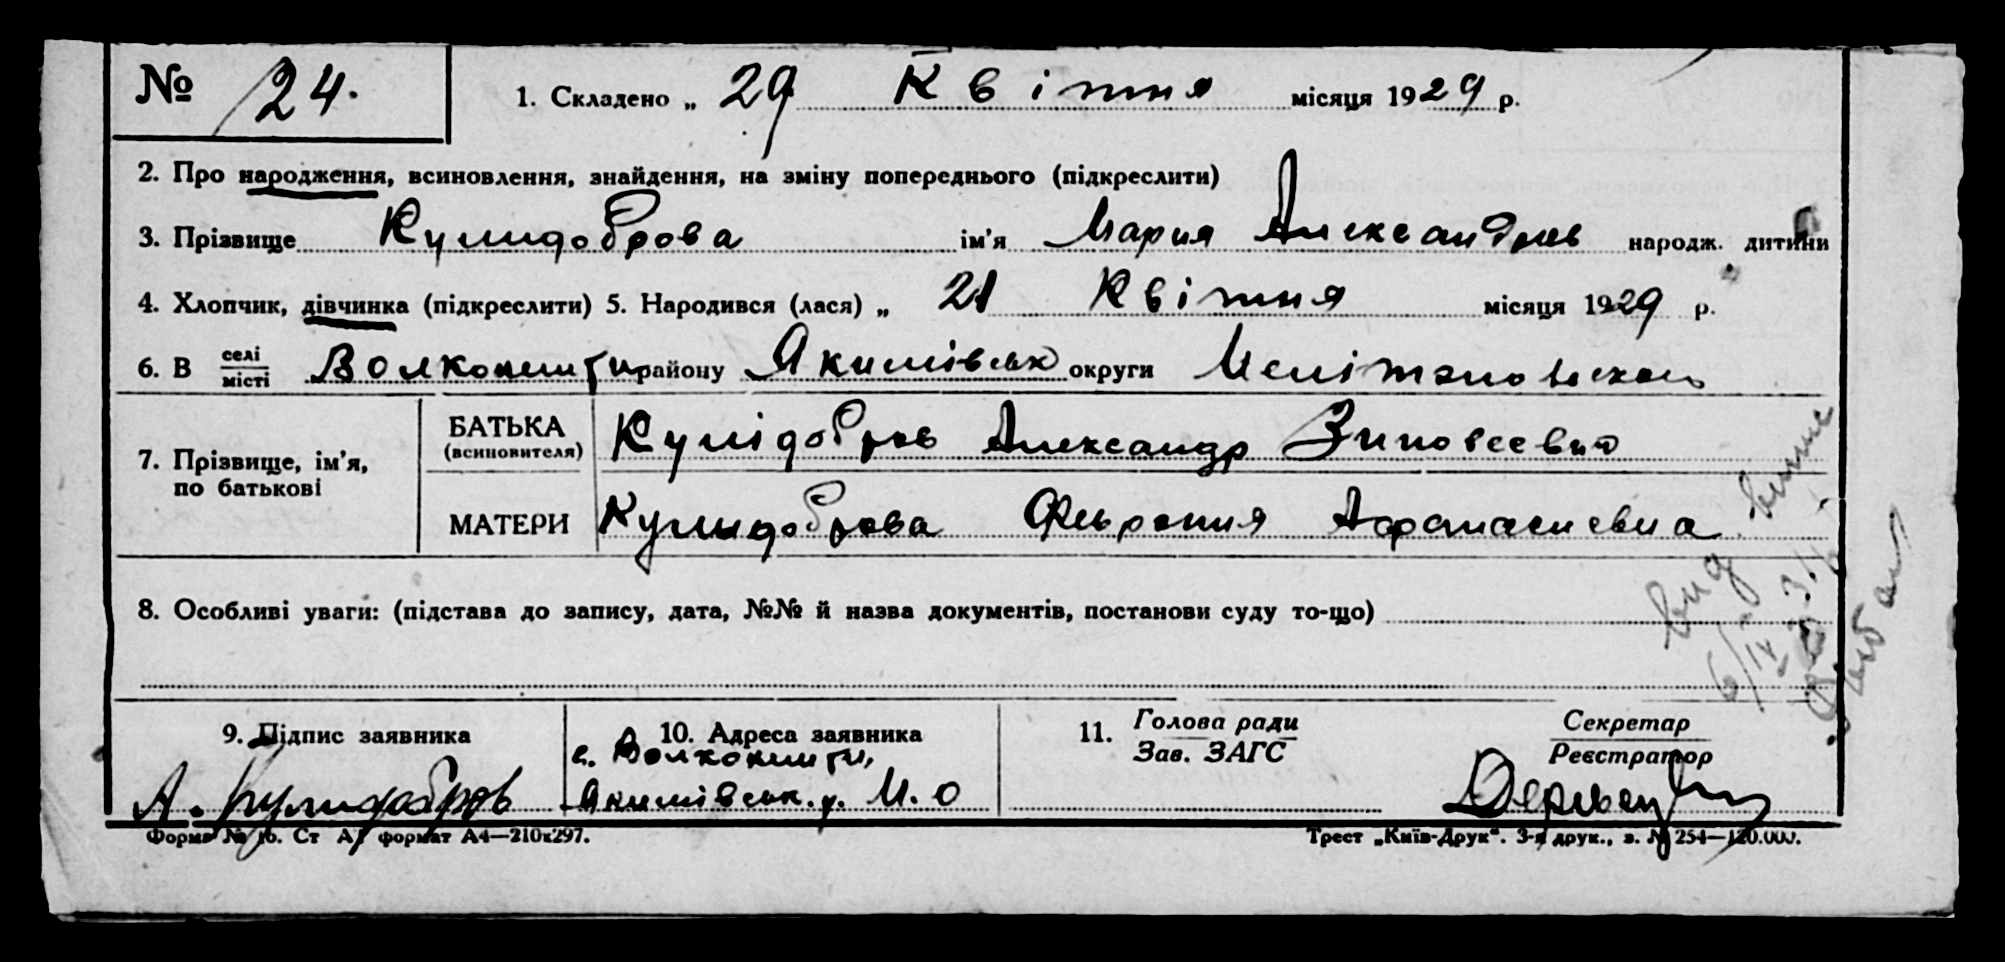 № 24. 1. Складено „ 29 Квітня місяця 1929 р.
2. Про народження, всиновлення, знайдення, на зміну попереднього (підкреслити)
3. Прізвище Кулидоброва ім'я Мария Александров народж. дитини
4. Хлопчик, дівчинка (підкреслити) 5. Народився (лася) „ 21 Квітня місяця 1929 р.
6. В селі/місті району Якимівськ округи
7. Прізвище, ім'я, по батькові
БАТЬКА (всиновителя) Кулідобров Александр Зиновеевич
МАТЕРИ Кулидоброва Феврония Афанасиевна
8. Особливі уваги: (підстава до запису, дата, №№ й назва документів, постанови суду то-що)
9. Підпис заявника
А. Кулидобров
10. Адреса заявника
с.
Якимівськ. р. М. О
11. Голова ради
Зав. ЗАГС
Секретар
Реєстратор
Форма № 1б. Ст А, формат А4—210х297.
Трест „Київ-Друк“. 3-я друк., з. № 254—120.000.